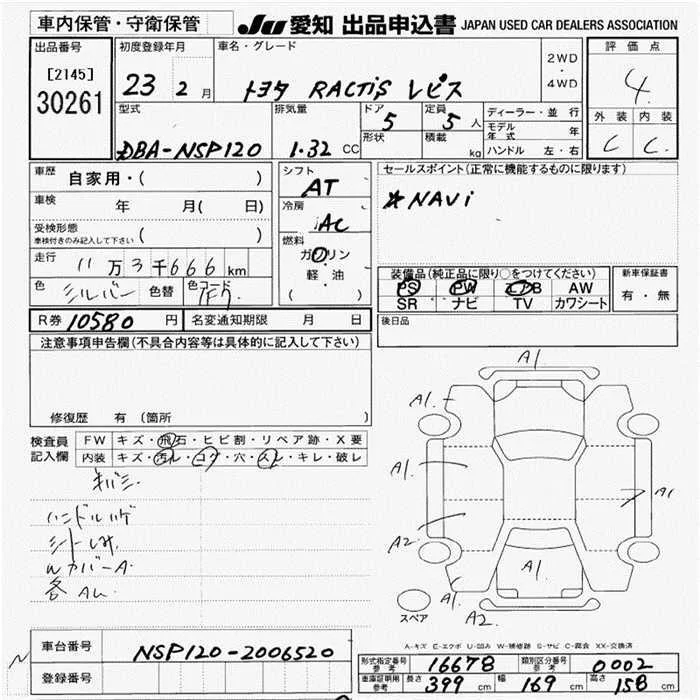 車内保管・守衛保管
JU 愛知 出品申込書 JAPAN USED CAR DEALERS ASSOCIATION
出品番号
[2145]
30261
初度登録年月
23 2 月
車名・グレード
トヨタ RACTiS レピス
2WD
・
4WD
評価点
4
外装 内装
C C
型式
DBA-NSP120
排気量
1.32 CC
ドア
5
形状
定員
5 人
積載
kg
ディーラー・並行
モデル年式 年
ハンドル 左・右
車歴 自家用・( )
車検 年 月( 日)
受検形態
車検付きのみ記入して下さい ( )
走行 11万3千666 km
色 シルバー 色替 色コード 1F7
シフト
AT
冷房
AC
燃料
ガソリン
軽・油
( )
セールスポイント(正常に機能するものに限ります)
☆NAVi
装備品(純正品に限り○をつけてください)
PS PW エアB AW
SR ナビ TV カワシート
新車保証書
有・無
後日品
R券 10580 円 名変通知期限 月 日
注意事項申告欄(不具合内容等は具体的に記入して下さい)
修復歴 有(箇所 )
検査員
記入欄
FW キズ・飛石・ヒビ割・リペア跡・X要
内装 キズ・汚レ・コゲ・穴・スレ・キレ・破レ
キバミ
ハンドルハゲ
シートしみ
WカバーA
各AU
A1
A1.
A1
A1
A2
A1
A1
A2
スペア
A-キズ E-エクボ U-凹み W-補修跡 S-サビ C-腐食 XX-交換済
車台番号 NSP120-2006520
登録番号
形式指定番号 参考 16678 類別区分番号 参考 0002
車庫証明用 参考 長さ 399 cm 幅 169 cm 高さ 158 cm